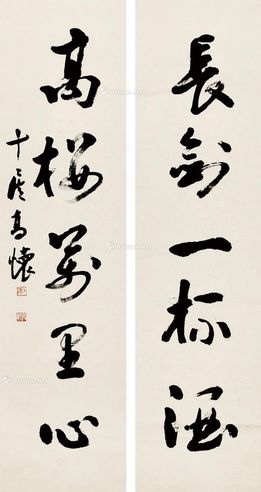 長劍一杯酒
高樓萬里心
十懷